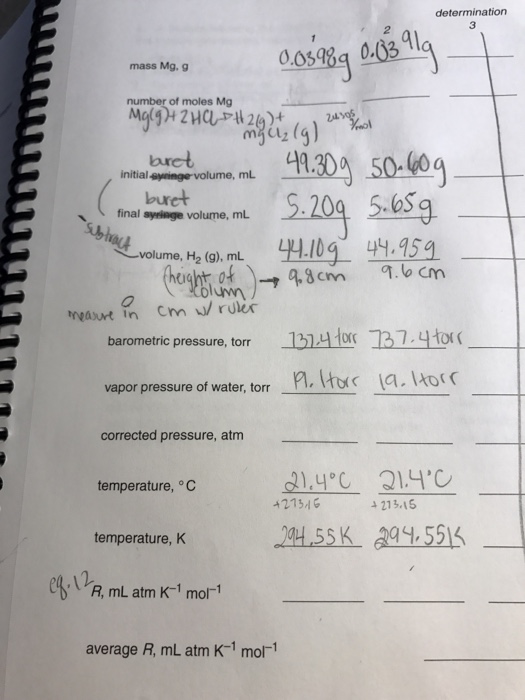 determination
1 2 3
mass Mg, g 0.0398g 0.0391g
number of moles Mg
Mg(g) + 2HCl → H2(g) + 24.305 g/mol
mgCl2 (g)
buret
initial syringe volume, mL 49.30g 50.60g
buret
final syringe volume, mL 5.20g 5.65g
subtract
volume, H2 (g), mL 44.10g 44.95g
(height of column) → 9.8cm 9.6 cm
measure in cm w/ ruler
barometric pressure, torr 737.4 torr 737.4 torr
vapor pressure of water, torr 19.1 torr 19.1 torr
corrected pressure, atm
temperature, °C 21.4°C 21.4°C
+273.15 +273.15
temperature, K 294.55K 294.55K
eq. 12
R, mL atm K⁻¹ mol⁻¹
average R, mL atm K⁻¹ mol⁻¹